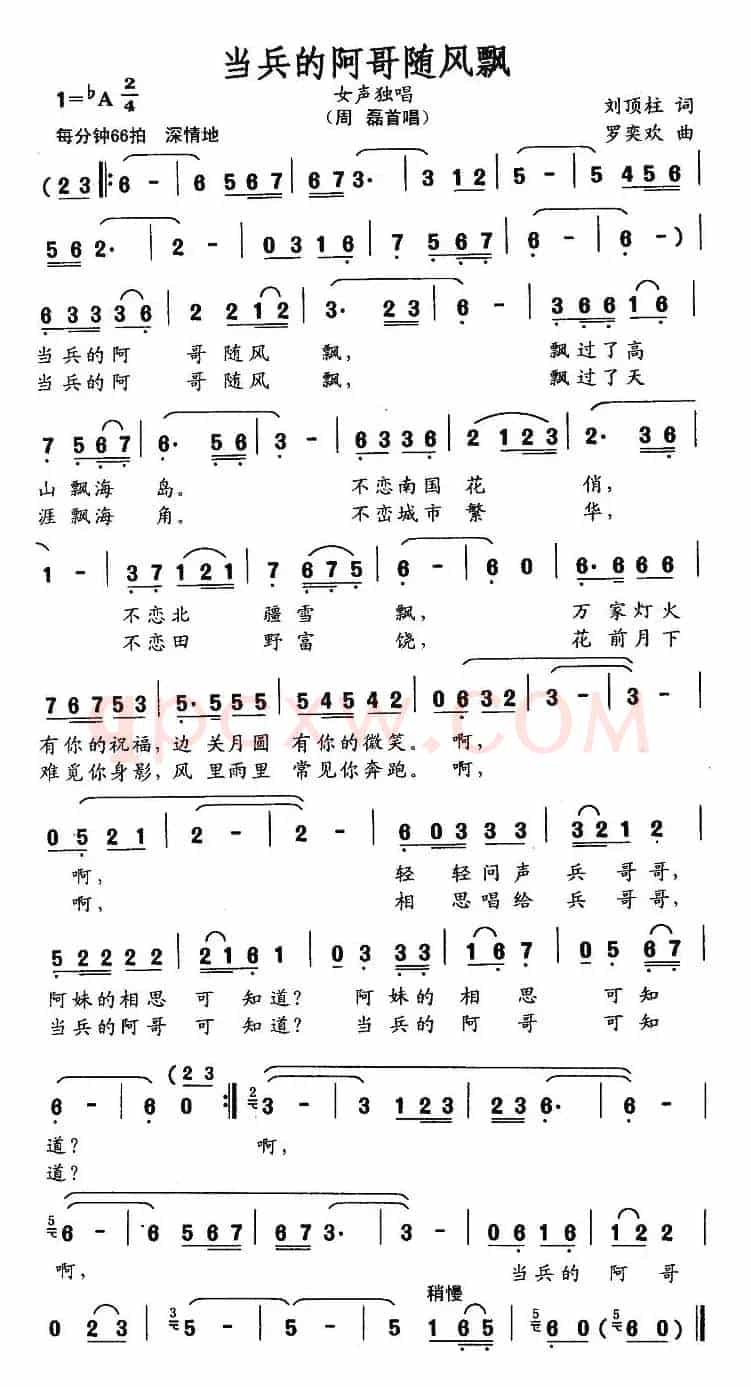 当兵的阿哥随风飘
1=♭A 2/4
女声独唱
(周 磊首唱)
刘顶柱 词
每分钟66拍 深情地
罗奕欢 曲
(2 3 ‖: 6 - | 6 5 6 7 | 6 7 3· | 3 1 2 | 5 - | 5 4 5 6 |
5 6 2· | 2 - | 0 3 1 6 | 7 5 6 7 | 6 - | 6 - ) |
6 3 3 3 6 | 2 2 1 2 | 3· 2 3 | 6 - | 3 6 6 1 6 |
当兵的阿 哥随风 飘, 飘过了高
当兵的阿 哥随风 飘, 飘过了天
7 5 6 7 | 6· 5 6 | 3 - | 6 3 3 6 | 2 1 2 3 | 2· 3 6 |
山飘海 岛。 不恋南国 花 俏,
涯飘海 角。 不恋城市 繁 华,
1 - | 3 7 1 2 1 | 7 6 7 5 | 6 - | 6 0 | 6· 6 6 6 |
不恋北 疆雪 飘, 万家灯火
不恋田 野富 饶, 花前月下
7 6 7 5 5 3 | 5· 5 5 5 | 5 4 5 4 2 | 0 6 3 2 | 3 - | 3 - |
有你的祝福,边 关月圆 有你的微笑。啊,
难觅你身影,风 里雨里 常见你奔跑。啊,
0 5 2 1 | 2 - | 2 - | 6 0 3 3 3 | 3 2 1 2 |
啊, 轻 轻问声 兵 哥哥,
啊, 相 思唱给 兵 哥哥,
5 2 2 2 2 | 2 1 6 1 | 0 3 3 3 | 1 6 7 | 0 5 6 7 |
阿妹的相思 可 知道? 阿妹的 相 思 可知
当兵的阿哥 可 知道? 当兵的 阿 哥 可知
(2 3
6 - | 6 0 :‖ 2 3 - | 3 1 2 3 | 1 2 3 6· | 6 - |
道? 啊,
道?
5 6 - | 6 5 6 7 | 6 7 3· | 3 - | 0 6 1 6 | 1 2 2 |
啊, 当兵的 阿 哥
稍慢
0 2 3 | 3 5 - | 5 - | 5 1 6 5 | 5 6 0 ( 5 6 0 ) ‖
qpcxw.COM